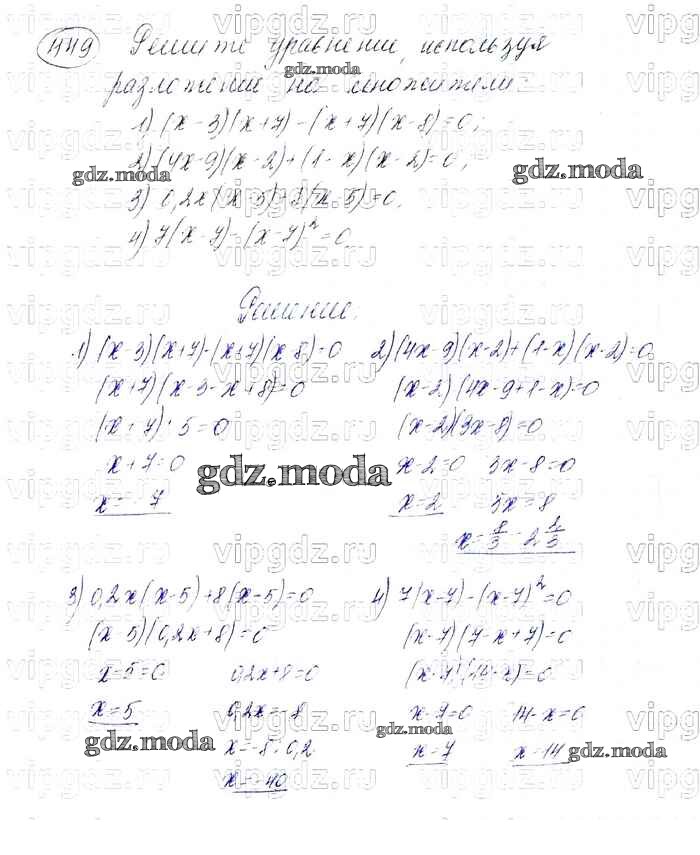 449 Решите уравнение, используя
разложение на множители:
1) (x-3)(x+7)-(x+7)(x-8)=0;
2) (4x-9)(x-2)+(1-x)(x-2)=0;
3) 0,2x(x-5)+8(x-5)=0;
4) 7(x-7)-(x-7)²=0
Решение.
1) (x-3)(x+7)-(x+7)(x-8)=0
(x+7)(x-3-x+8)=0
(x+7)·5=0
x+7=0
x=-7
2) (4x-9)(x-2)+(1-x)(x-2)=0
(x-2)(4x-9+1-x)=0
(x-2)(3x-8)=0
x-2=0 3x-8=0
x=2 3x=8
x=8/3=2 2/3
3) 0,2x(x-5)+8(x-5)=0
(x-5)(0,2x+8)=0
x-5=0 0,2x+8=0
x=5 0,2x=-8
x=-8:0,2
x=-40
4) 7(x-7)-(x-7)²=0
(x-7)(7-x+7)=0
(x-7)(14-x)=0
x-7=0 14-x=0
x=7 x=14
gdz.moda
gdz.moda
gdz.moda
gdz.moda
gdz.moda
gdz.moda
vipgdz.ru